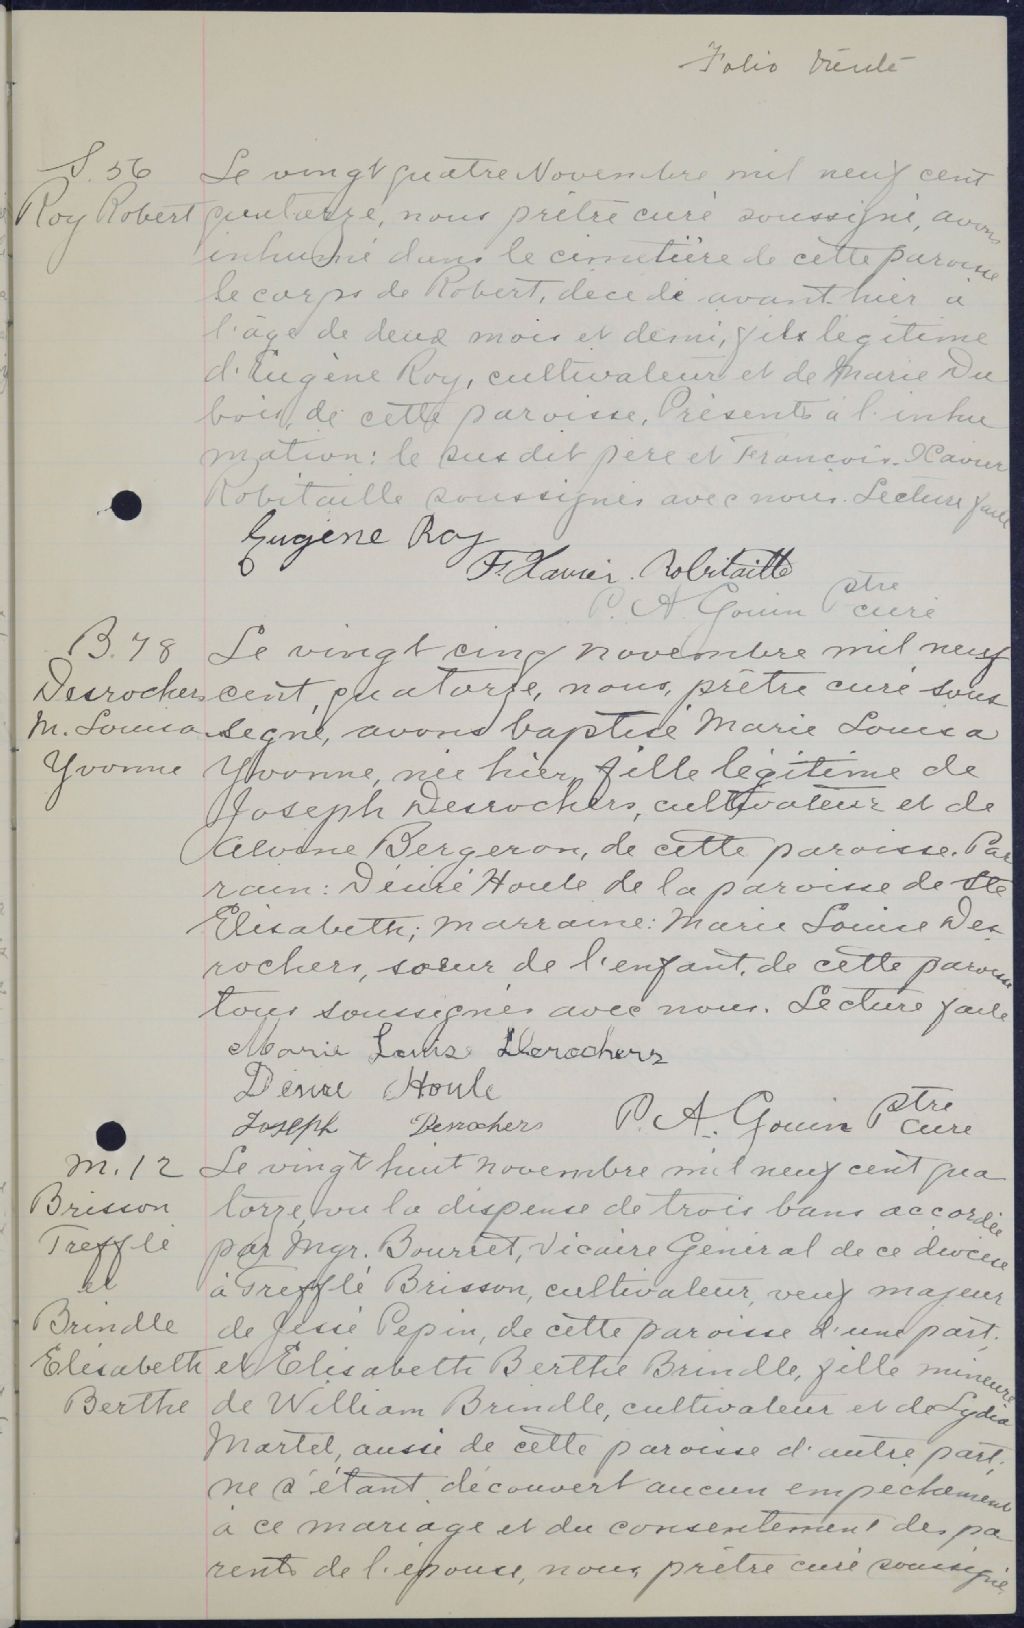 Folio trente
S. 56
Roy Robert
Le vingt quatre Novembre mil neuf cent
quatorze, nous prêtre curé soussigné, avons
inhumé dans le cimetière de cette paroisse
le corps de Robert, décédé avant-hier à
l'âge de deux mois et demi, fils légitime
d'Eugène Roy, cultivateur et de Marie Du
bois, de cette paroisse. Présents à l'inhu
mation: le susdit père et François-Xavier
Robitaille soussignés avec nous. Lecture faite
Eugène Roy
F. Xavier. Robitaille
P. A. Gouin Ptre
curé
B. 78
Desrochers
M. Louisa
Yvonne
Le vingt cinq novembre mil neuf
cent, quatorze, nous, prêtre curé sous
segné, avons baptisé Marie Louisa
Yvonne, née hier, fille légitime de
Joseph Desrochers, cultivateur et de
Alvine Bergeron, de cette paroisse. Par
rain: Désiré Houle de la paroisse de Ste
Elisabeth; marraine: Marie Louise Des
rochers, soeur de l'enfant, de cette paroisse
tous soussignés avec nous. Lecture faite
Marie Louise Derochers
Désiré Houle
Joseph Derochers P. A. Gouin Ptre
Curé
M. 12
Brisson
Trefflé
et
Brindle
Elisabeth
Berthe
Le vingt huit novembre mil neuf cent qua
torze, vu la dispense de trois bans accordée
par Mgr. Bourret, Vicaire Général de ce diocèse
à Trefflé Brisson, cultivateur, veuf majeur
de Jessé Pepin, de cette paroisse d'une part;
et Elisabeth Berthe Brindle, fille mineure
de William Brindle, cultivateur et de Lydia
Martel, aussi de cette paroisse d'autre part;
ne s'étant découvert aucun empêchement
à ce mariage et du consentement des pa
rents de l'épouse, nous, prêtre curé soussigné,